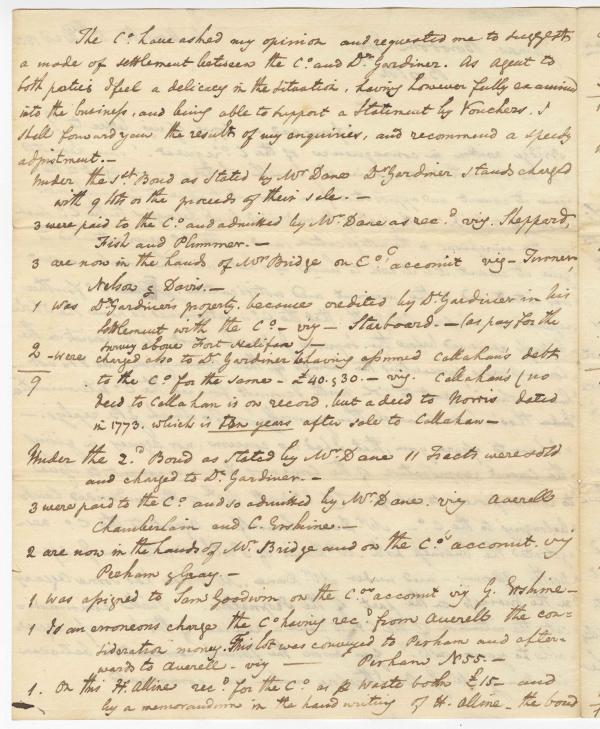 The Co. have asked my opinion and requested me to suggest
a mode of settlement between the Co. and Dr. Gardiner. As agent to
both parties I feel a delicacy in the situation, having however fully examined
into the business, and being able to support a Statement by Vouchers, I
shall forward you the result of my enquiries, and recommend a speedy
adjustment.—
Under the 1st. Bond as Stated by Mr. Dane Dr. Gardiner stands charged
with 9 lots or the proceeds of their sale.—
3 were paid to the Co. and admitted by Mr. Dane as rec.d viz. Sheppard,
Fish and Plummer.—
3 are now in the hands of Mr Bridge on Co.s account viz— Turner,
Nelson & Davis.—
1 was Dr. Gardiner's property, because credited by Dr. Gardiner in his
settlement with the Co.— viz— Starboard.— (as pay for the
survey above Fort Halifax)—
2 - were charged also to Dr. Gardiner he having assumed Callahan's debt
9 to the Co. for the same— £40. & 30.— viz. Callahan's (no
deed to Callahan is on record, but a deed to Norris dated
in 1773, which is ten years after sale to Callahan—
Under the 2.d Bond as Stated by Mr. Dane 11 Tracts were sold
and charged to Dr. Gardiner.—
3 were paid to the Co. and so admitted by Mr. Dane. viz Averell
Chamberlain and C. Erskine.—
2 are now in the hands of Mr. Bridge and on the Co.s account. viz
Perham & Gray.—
1 was assigned to Sam Goodwin on the Co.s account viz G. Erskine—
1 Is an erroneous charge the Co. having rec.d from Averell the con-
sideration money. This lot was conveyed to Perham and after-
wards to Averell— viz — Perham N. 55.—
1. On this H. Alline rec.d for the Co. as waste book £15— and
by a memorandum in the hand writing of H. Alline— the bond